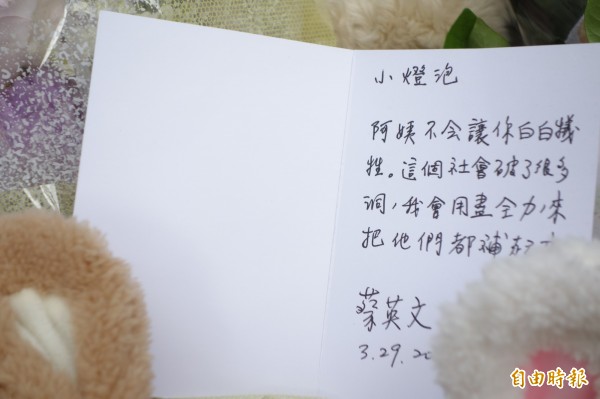 小燈泡
阿姨不会讓你白白犧
牲。這個社會破了很多
洞,我會用盡全力,來
把他們都補
蔡英文
3.29.20
自由時報